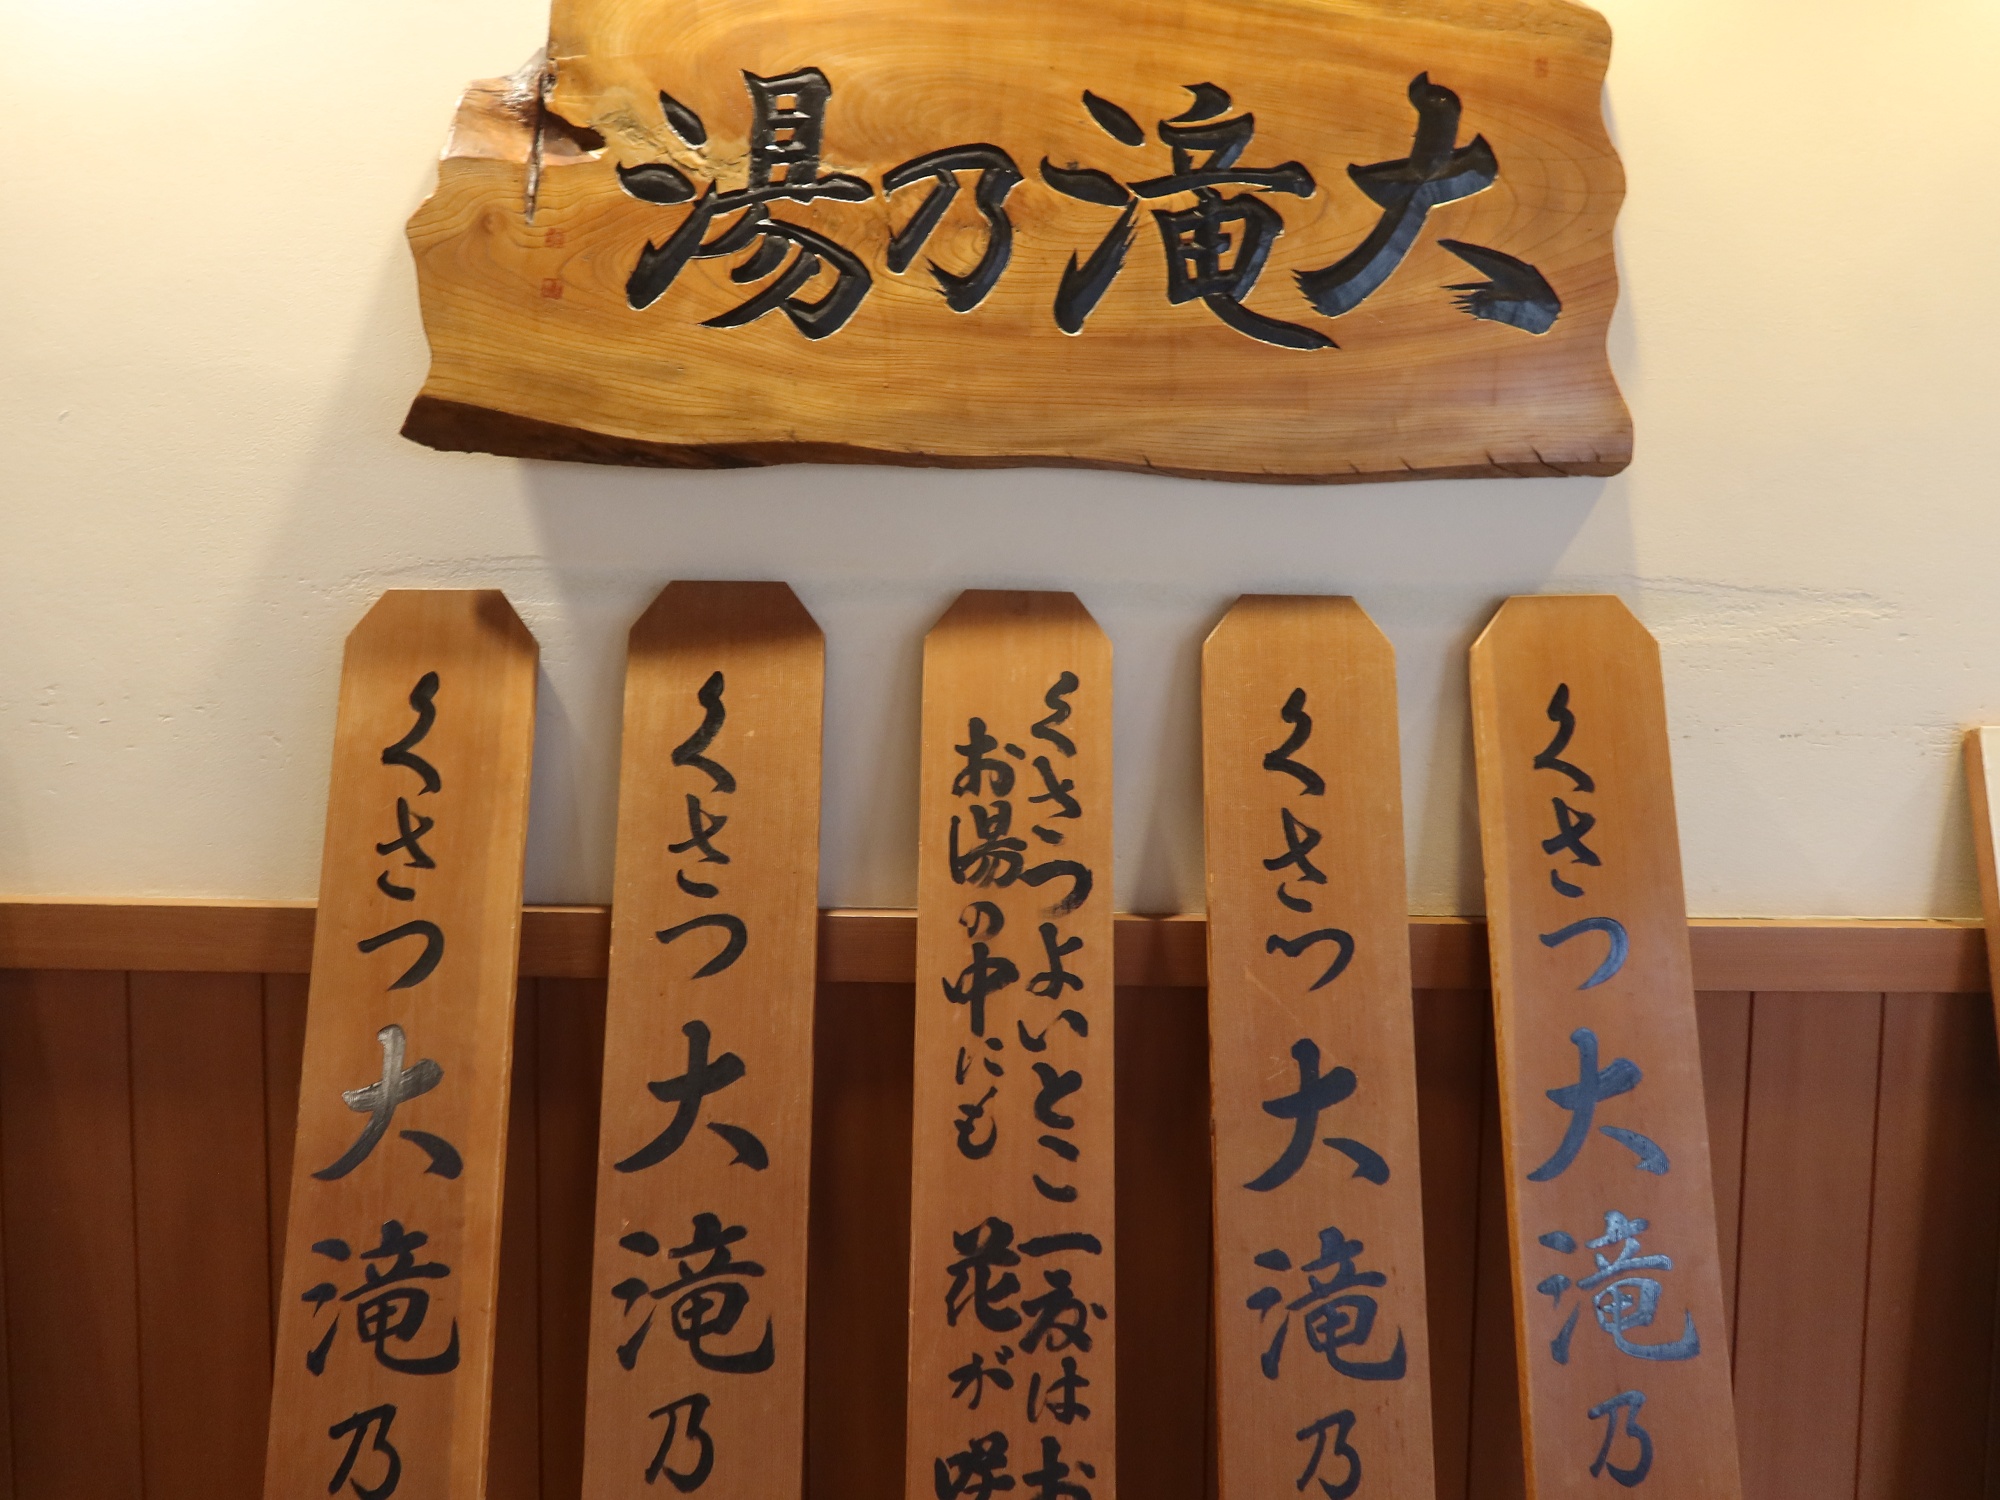 大滝乃湯
くさつ大滝乃
くさつ大滝乃
くさつよいとこ一度はお
お湯の中にも花が咲
くさつ大滝乃
くさつ大滝乃